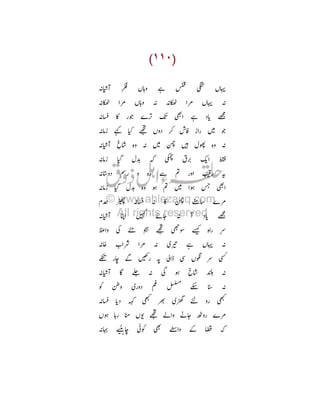 (۱۱۰)
یہاں تنگیٔ قفس ہے وہاں فکرِ آشیانہ
نہ یہاں مرا ٹھکانہ نہ وہاں مرا ٹھکانہ
مجھے یاد ہے ابھی تک ترے جور کا فسانہ
جو میں راز فاش کر دوں تجھے کیا کہے زمانہ
نہ وہ پھول ہیں چمن میں نہ وہ شاخِ آشیانہ
فقط ایک برق چمکی کہ بدل گیا زمانہ
یہ رقیب اور تم سے رہ و رسمِ دوستانہ
ابھی جس ہوا میں تم ہو وہ بدل گیا زمانہ
مرے سامنے چمن کا نہ فسانہ چھیڑ ہمدم
مجھے یاد آ نہ جائے کہیں اپنا آشیانہ
سرِ راہ کیسے سوجھی تجھے ہجوِ مے کی واعظ
نہ یہاں ہے تیری مسجد نہ مرا شراب خانہ
کسی سر نگوں سی ڈالی پہ رکھیں گے چار تنکے
نہ بلند شاخ ہو گی نہ جلے گا آشیانہ
نہ سنا سکے مسلسل غمِ دوریٔ وطن کو
کبھی رو لئے گھڑی بھر کبھی کہہ دیا فسانہ
مرے روٹھ جانے والے تجھے یوں منا رہا ہوں
کہ قضا کے واسطے بھی کوئی چاہیئے بہانہ
© www.alebzauq.com
All rights reserved